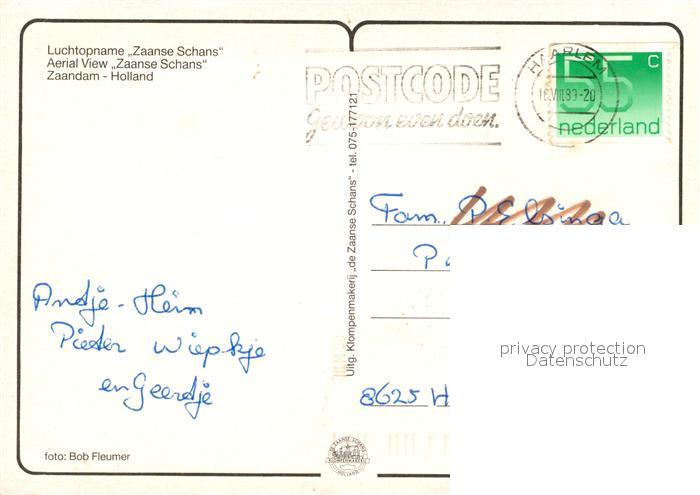 Luchtopname „Zaanse Schans"
Aerial View „Zaanse Schans"
Zaandam - Holland
POSTCODE
Gewoon even doen.
HAARLEM
55 C
nederland
Uitg. Klompenmakerij „de Zaanse Schans" - tel. 075-177121
Fam. P. Elsinga
P
8625 H
Antje - Hein
Pieter Wiepkje
en Geertje
privacy protection
Datenschutz
foto: Bob Fleumer
DE ZAANSE SCHANS
KLOMPENMAKERIJ
HOLLAND